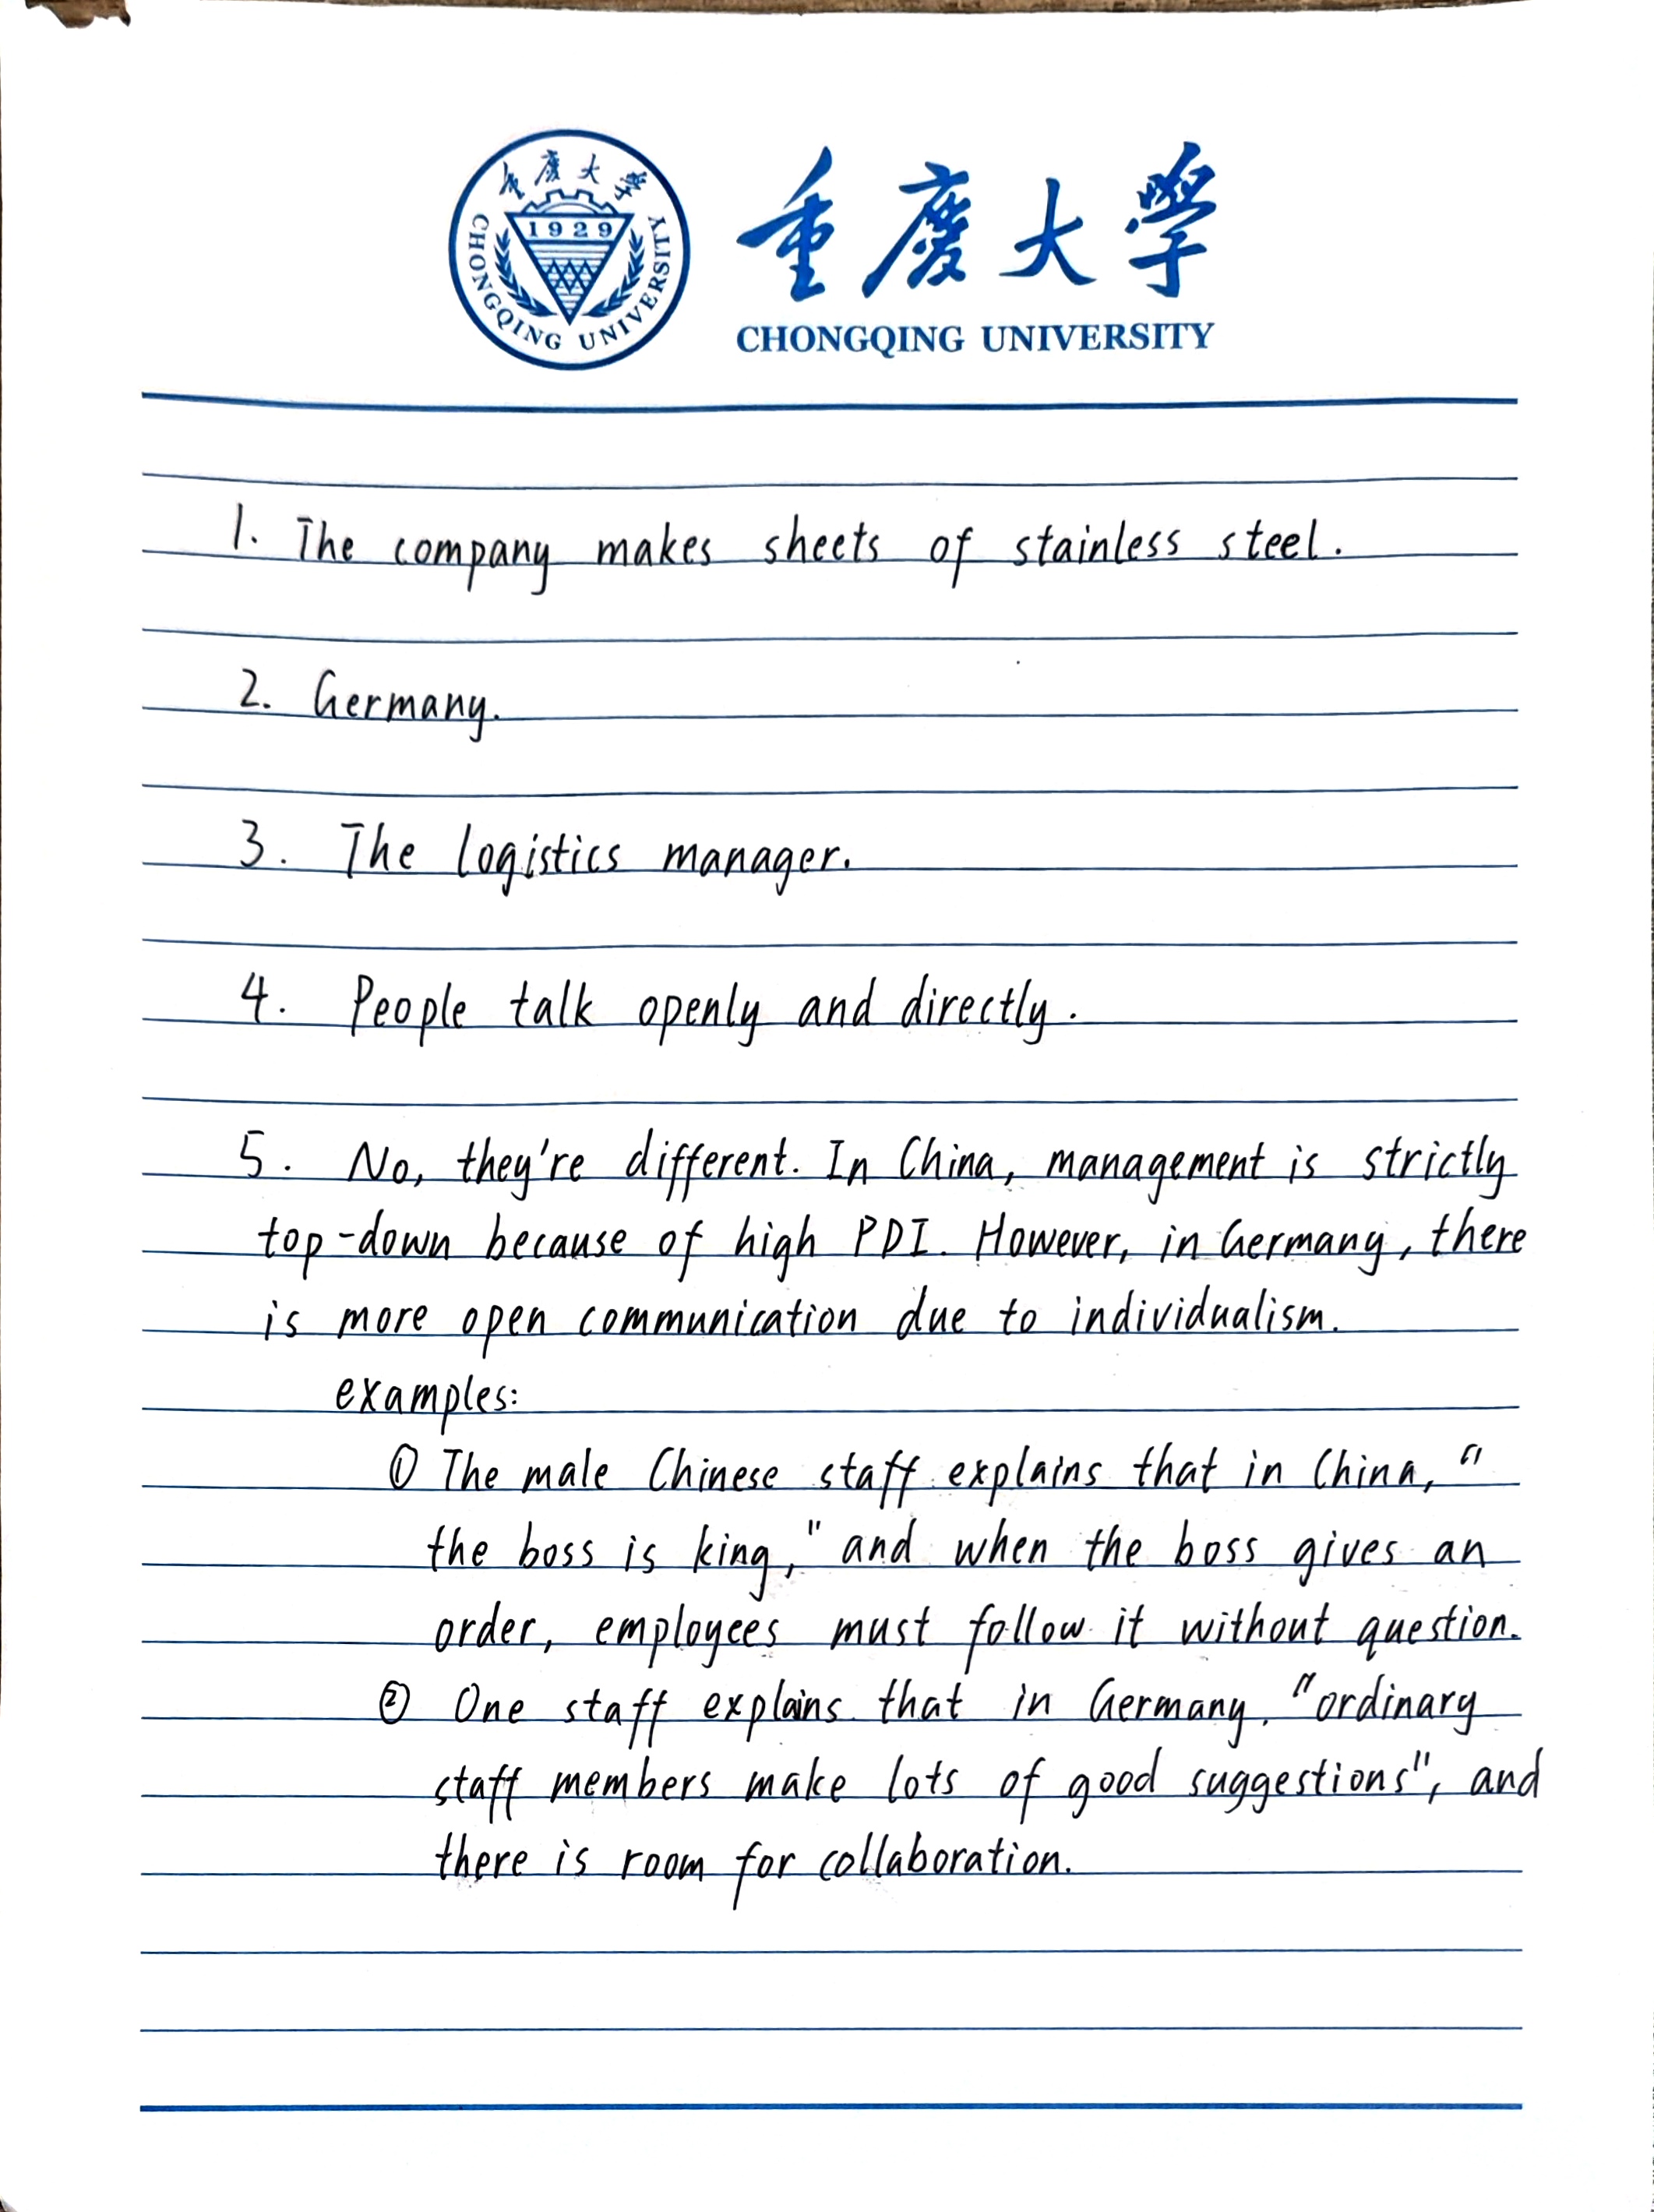 重慶大學
1929
CHONGQING UNIVERSITY
重慶大學
CHONGQING UNIVERSITY
1. The company makes sheets of stainless steel.
2. Germany.
3. The logistics manager.
4. People talk openly and directly.
5. No, they're different. In China, management is strictly
top-down because of high PDI. However, in Germany, there
is more open communication due to individualism.
examples:
① The male Chinese staff explains that in China, "
the boss is king," and when the boss gives an
order, employees must follow it without question.
② One staff explains that in Germany, "ordinary
staff members make lots of good suggestions", and
there is room for collaboration.